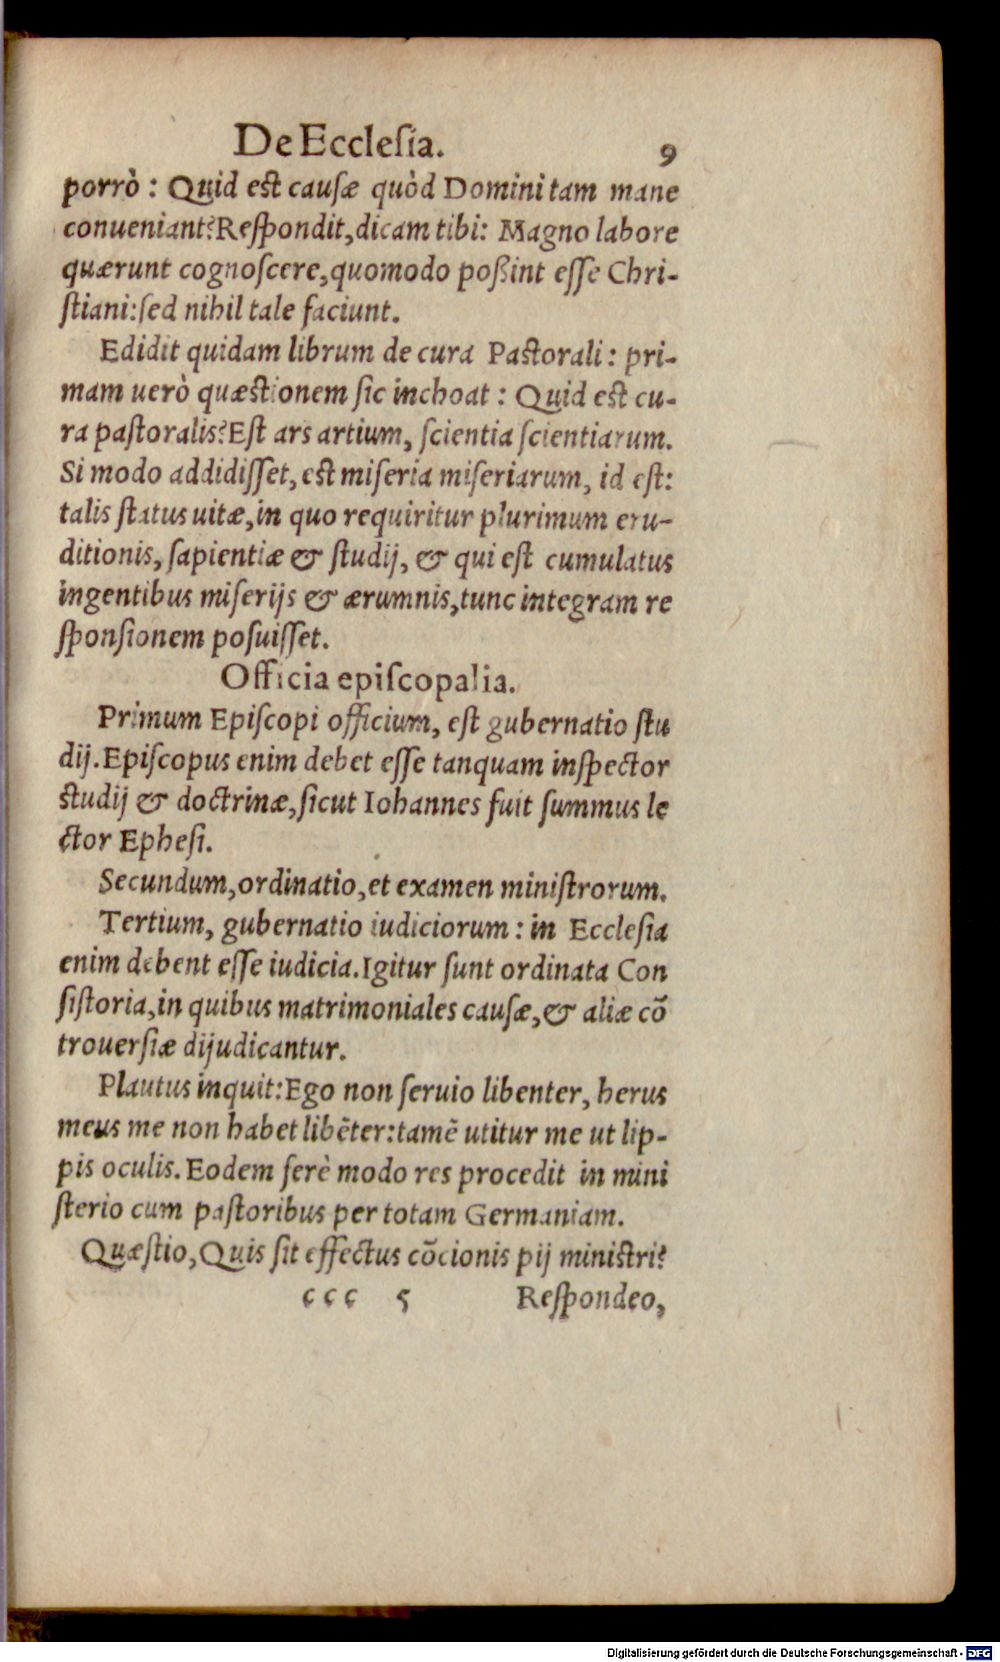 De Ecclesia. 9
porrò : Quid est causæ quòd Domini tam mane
conueniant? Respondit, dicam tibi: Magno labore
quærunt cognoscere, quomodo poßint esse Chri-
stiani: sed nihil tale faciunt.
Edidit quidam librum de cura Pastorali : pri-
mam uerò quæstionem sic inchoat : Quid est cu-
ra pastoralis? Est ars artium, scientia scientiarum.
Si modo addidisset, est miseria miseriarum, id est:
talis status uitæ, in quo requiritur plurimum eru-
ditionis, sapientiæ & studij, & qui est cumulatus
ingentibus miserijs & ærumnis, tunc integram re
sponsionem posuisset.
Officia episcopalia.
Primum Episcopi officium, est gubernatio stu
dij. Episcopus enim debet esse tanquam inspector
studij & doctrinæ, sicut Iohannes fuit summus le
ctor Ephesi.
Secundum, ordinatio, et examen ministrorum.
Tertium, gubernatio iudiciorum : in Ecclesia
enim debent esse iudicia. Igitur sunt ordinata Con
sistoria, in quibus matrimoniales causæ, & aliæ cō
trouersiæ dijudicantur.
Plautus inquit: Ego non seruio libenter, herus
meus me non habet libēter: tamē utitur me ut lip-
pis oculis. Eodem ferè modo res procedit in mini
sterio cum pastoribus per totam Germaniam.
Quæstio, Quis sit effectus cōcionis pij ministri?
ccc 5 Respondeo,
Digitalisierung gefördert durch die Deutsche Forschungsgemeinschaft - DFG